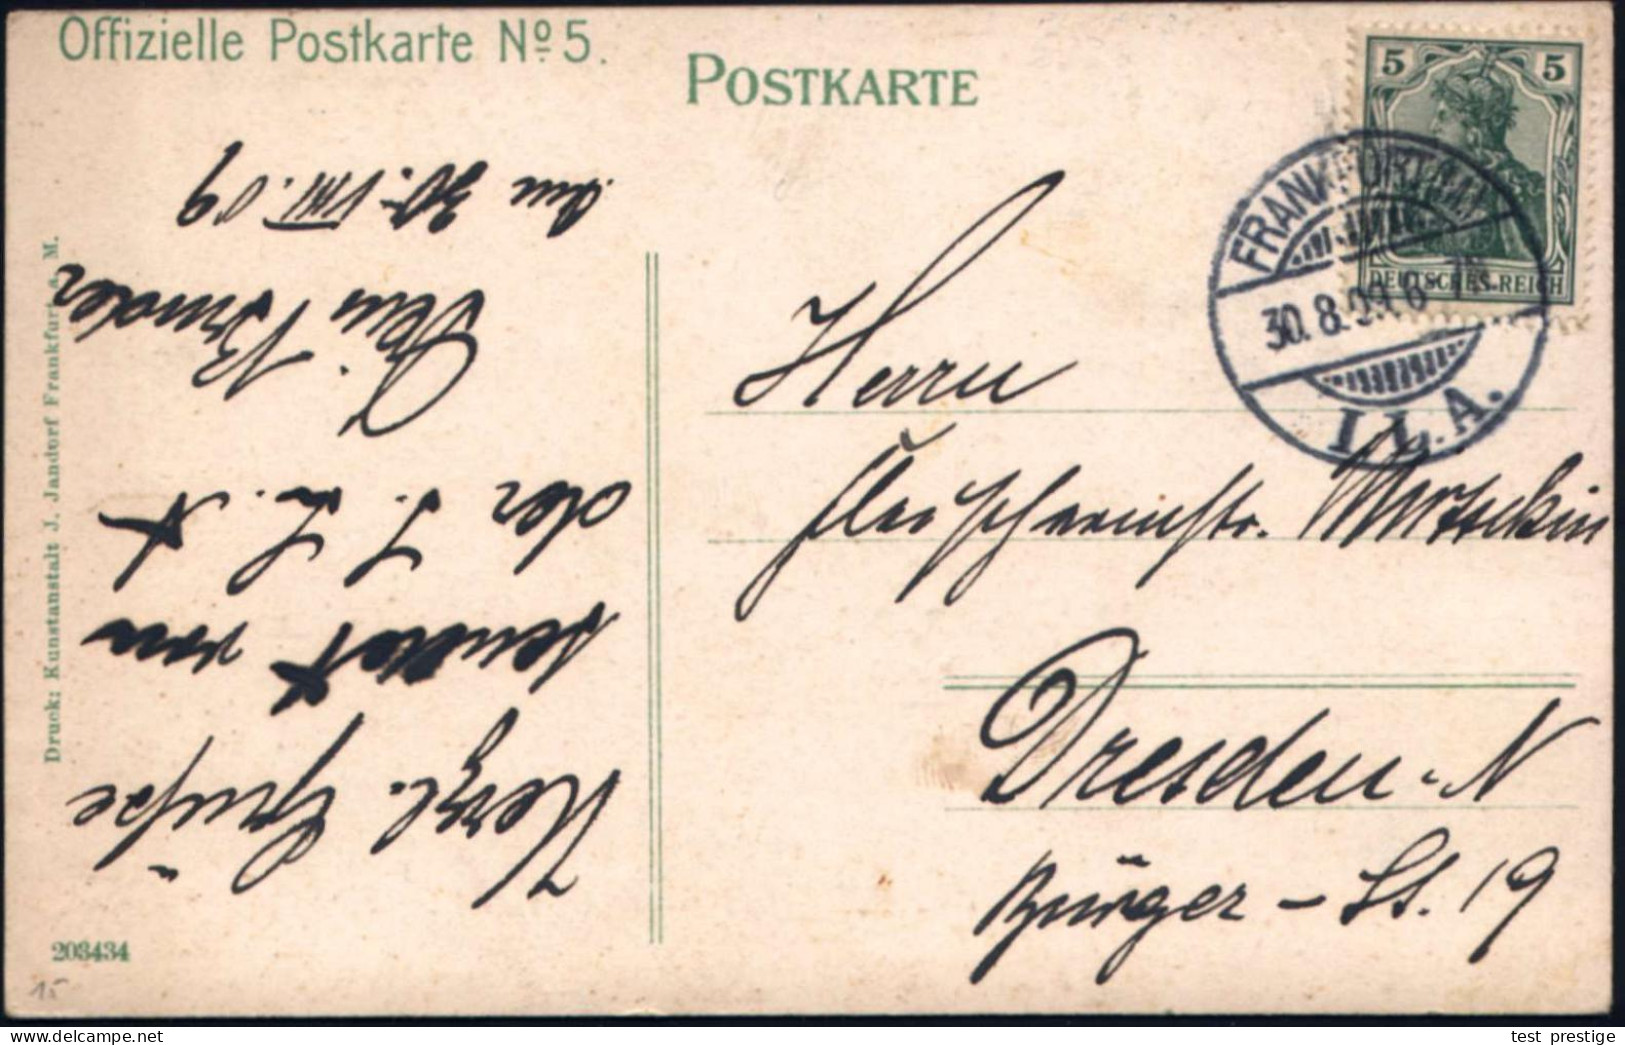 Offizielle Postkarte Nº 5.
POSTKARTE
5 5
DEUTSCHES REICH
FRANKFURT (MAIN)
30.8.09. 6-7N.
I.L.A.
Herrn
Fleischermstr.
Dresden-N
Bürger-St. 19
Herzl. Grüße
sendet von
der I. L. A
Dein Bruder
am 30.VIII.09
Druck: Kunstanstalt J. Jandorf Frankfurt a. M.
203434
15
test prestige